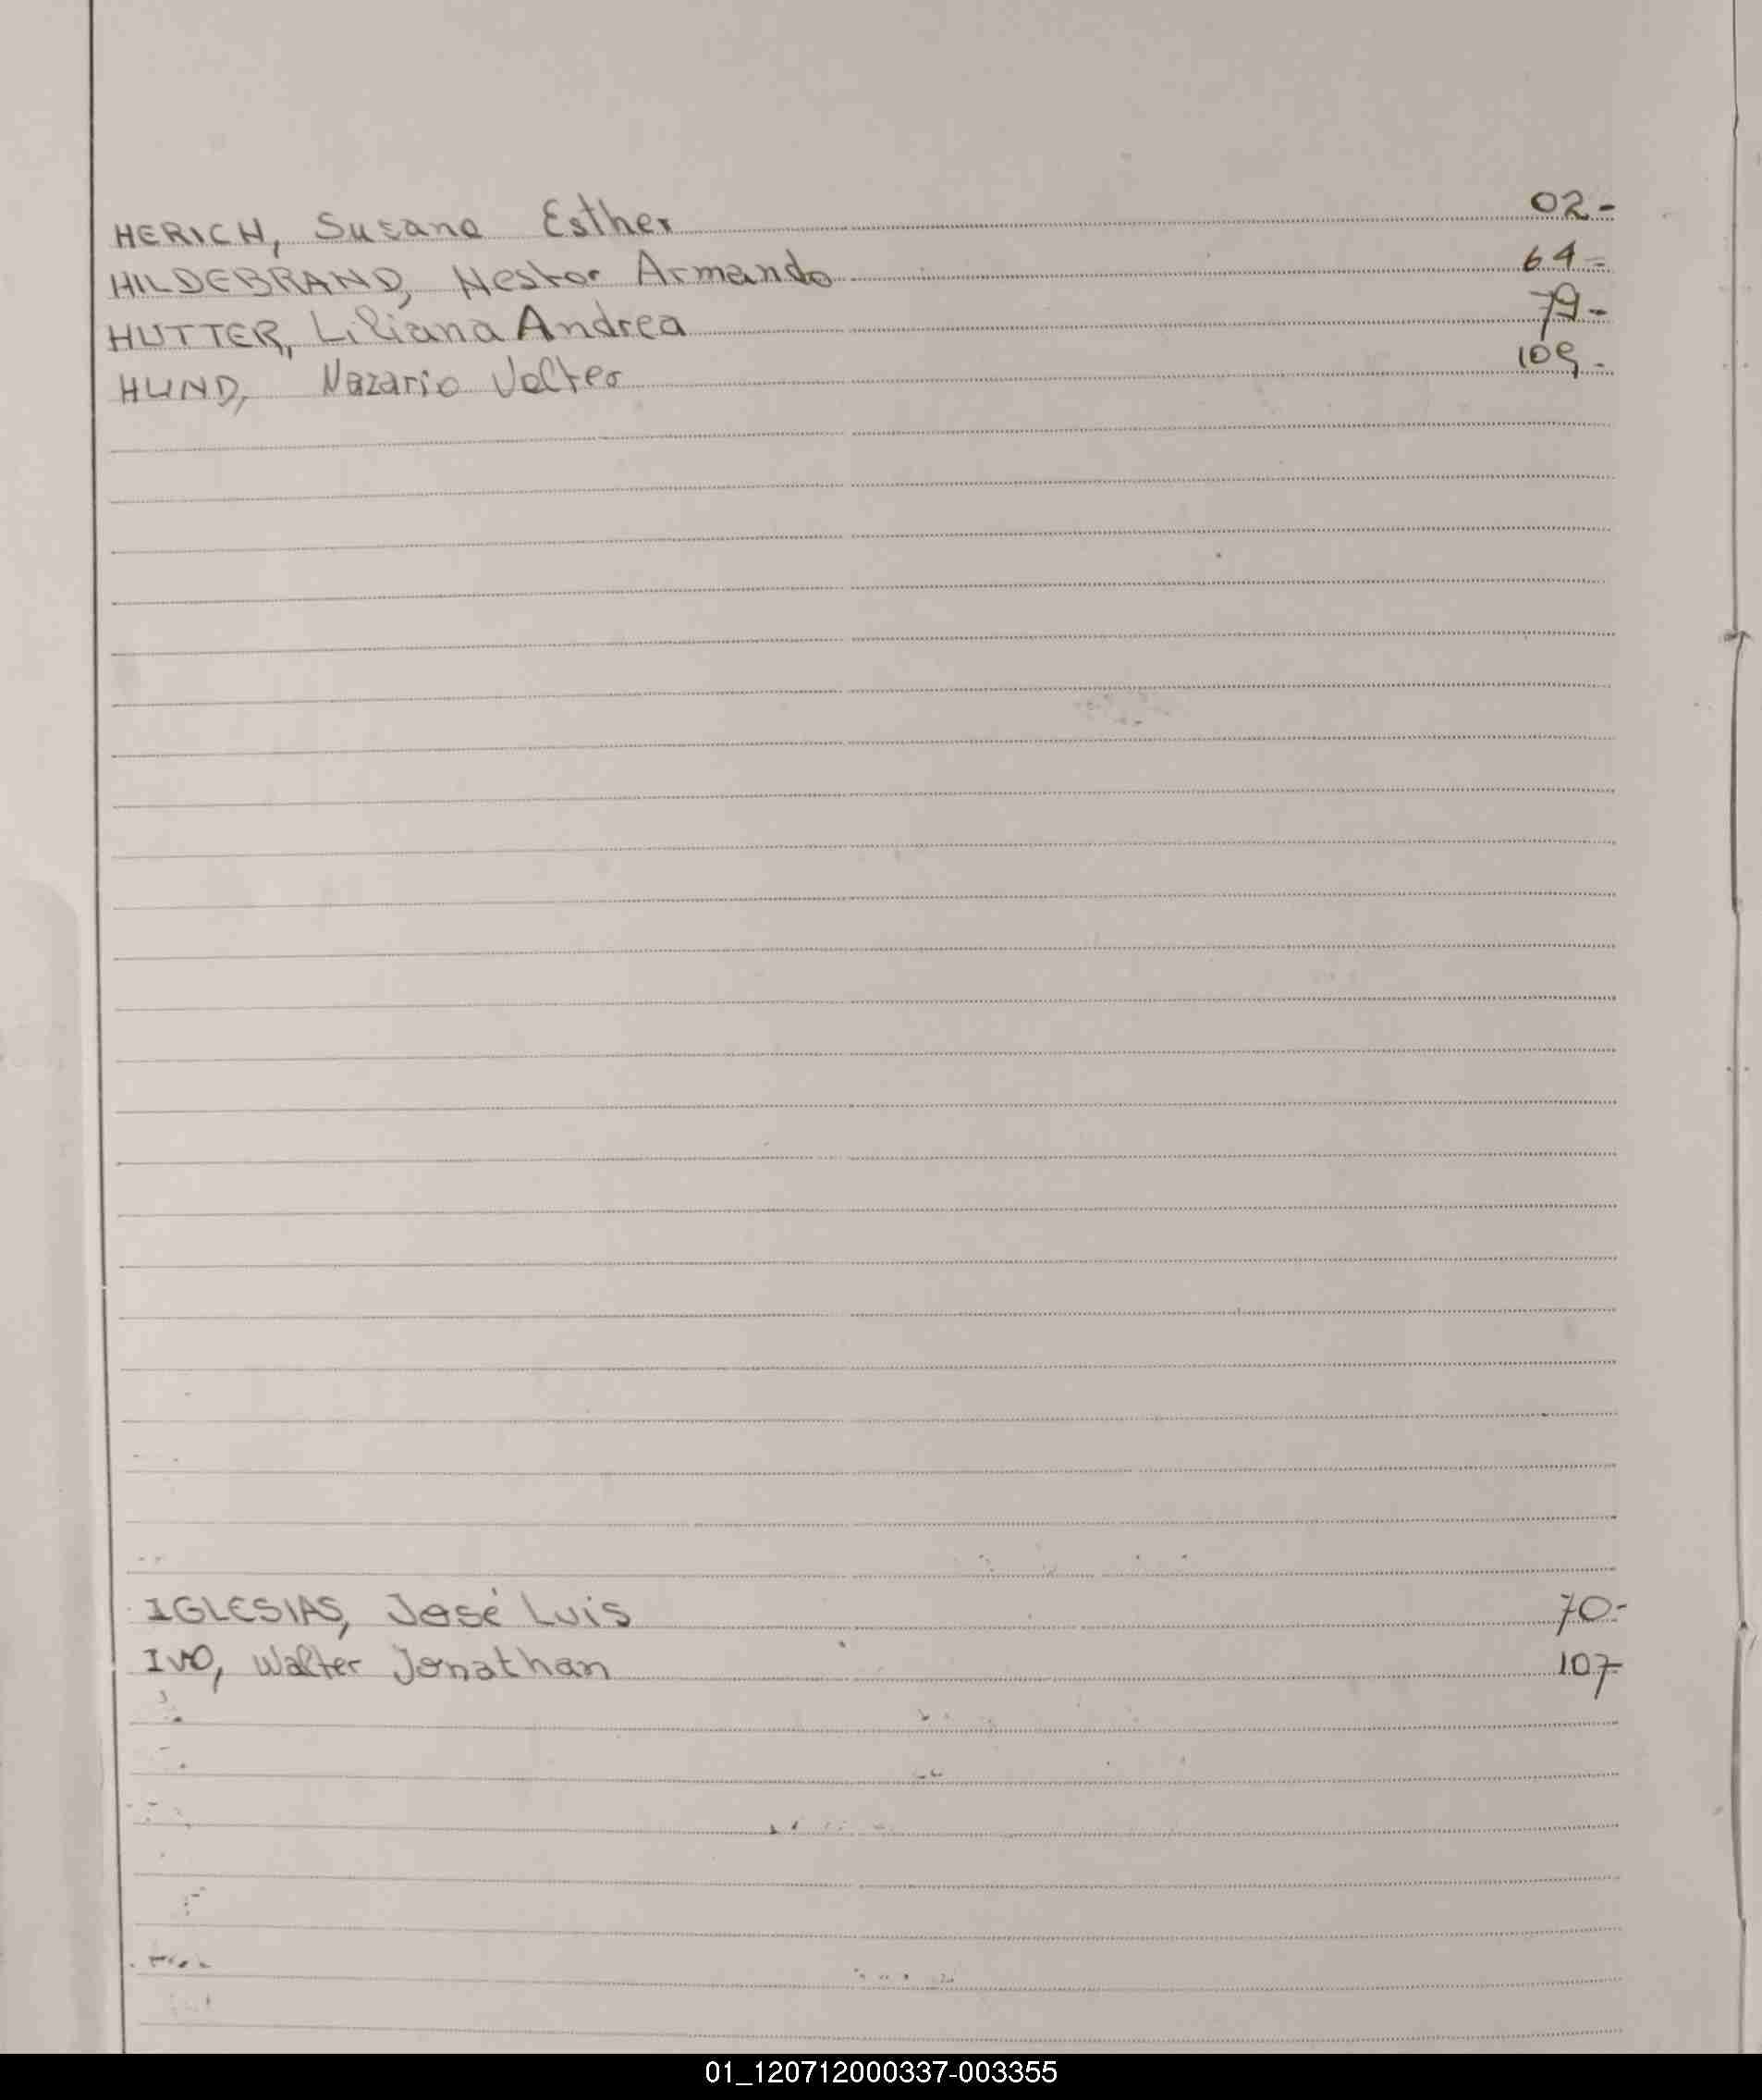 HERICH, Susana Esther 02-
HILDEBRAND, Nestor Armando 64-
HUTTER, Liliana Andrea 79-
HUND, Nazario 109-
IGLESIAS, José Luis 70-
IVO, Walter Jonathan 107-
01_120712000337-003355